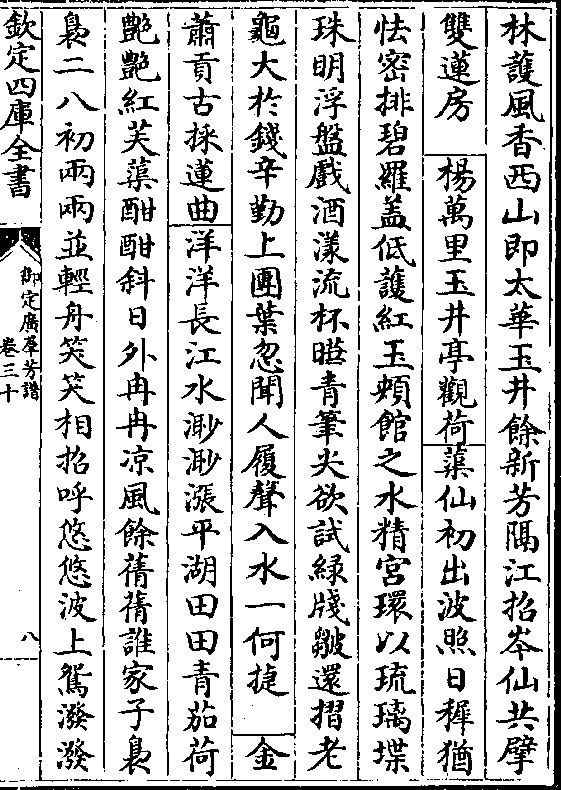 林護風香西山即太華玉井餘新芳隅江招岑仙共擘
雙蓮房　楊萬里玉井亭觀荷蕖仙初出波照日穉猶
怯密排碧羅盖低護紅玉頰館之水精宮環以琉璃堞
珠明浮盤戲酒漾流杯㬠青筆尖欲試緑牋皺還摺老
龜大於錢辛勤上團葉忽聞人履聲入水一何捷　金
蕭貢古採蓮曲洋洋長江水渺渺漲平湖田田青茄荷
艷艷紅芙蕖酣酣斜日外冉冉凉風餘蒨蒨誰家子裊
裊二八初兩兩並輕舟笑笑相招呼悠悠波上鴛潑潑
欽定四庫全書
御定廣羣芳譜
卷三十
八